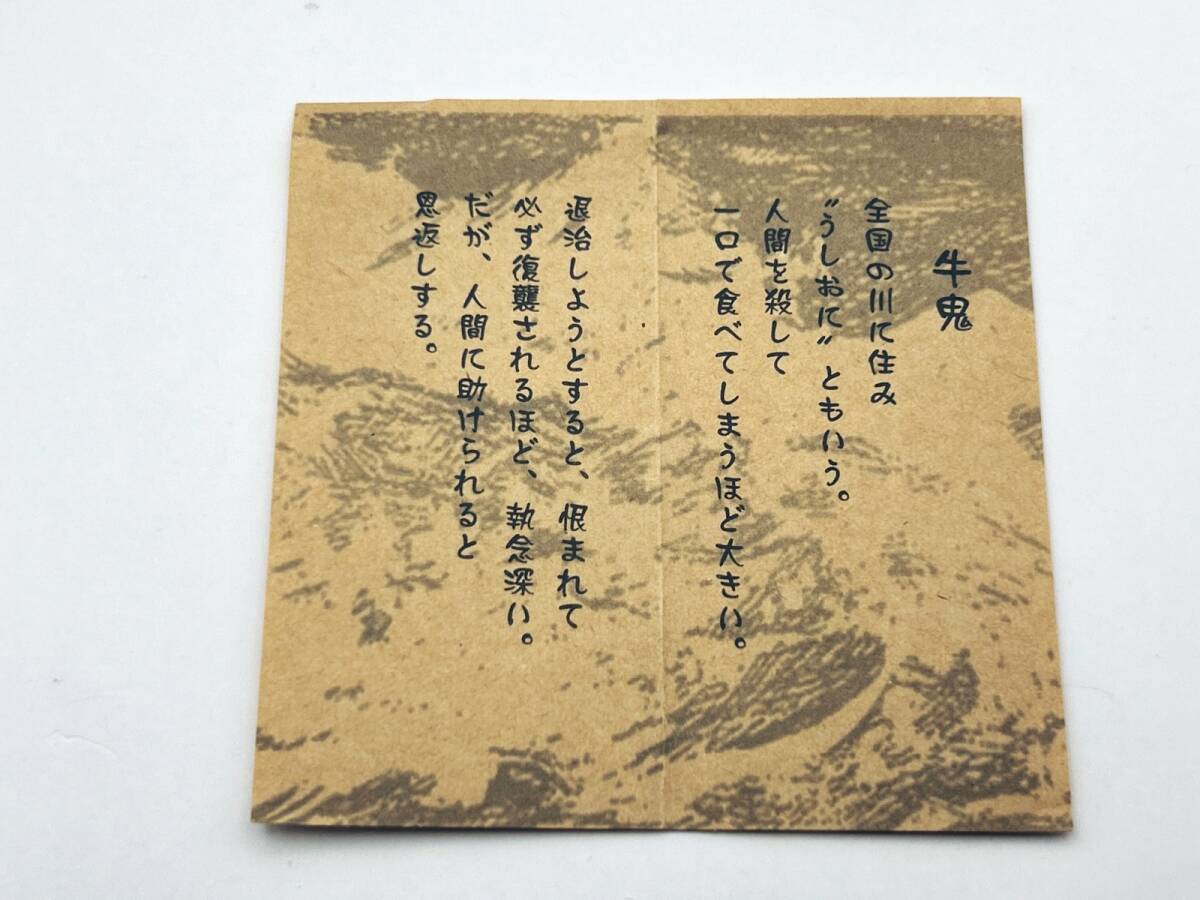 牛鬼
全国の川に住み
〝うしおに〟ともいう。
人間を殺して
一口で食べてしまうほど大きい。
退治しようとすると、恨まれて
必ず復襲されるほど、執念深い。
だが、人間に助けられると
恩返しする。